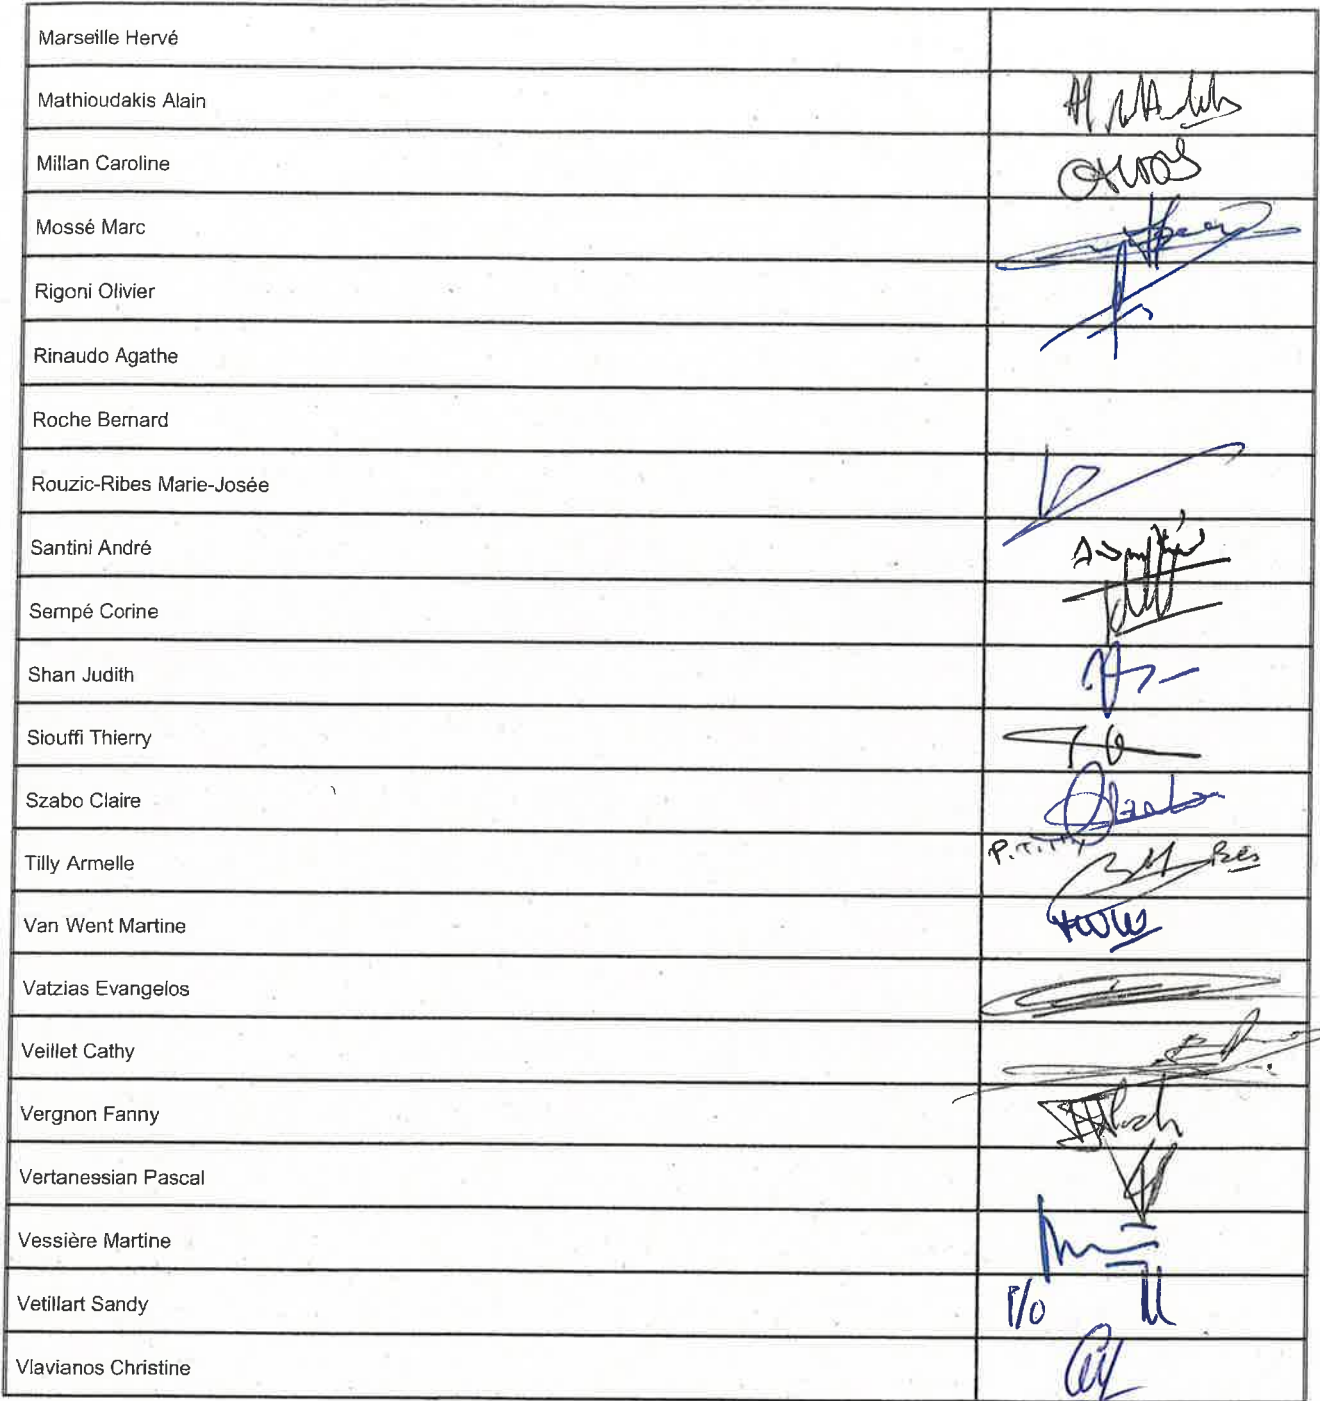 Marseille Hervé
Mathioudakis Alain
Millan Caroline
Mossé Marc
Rigoni Olivier
Rinaudo Agathe
Roche Bernard
Rouzic-Ribes Marie-Josée
Santini André
Sempé Corine
Shan Judith
Siouffi Thierry
Szabo Claire
Tilly Armelle
P.
Van Went Martine
Vatzias Evangelos
Veillet Cathy
Vergnon Fanny
Vertanessian Pascal
Vessière Martine
Vetillart Sandy P/O
Vlavianos Christine